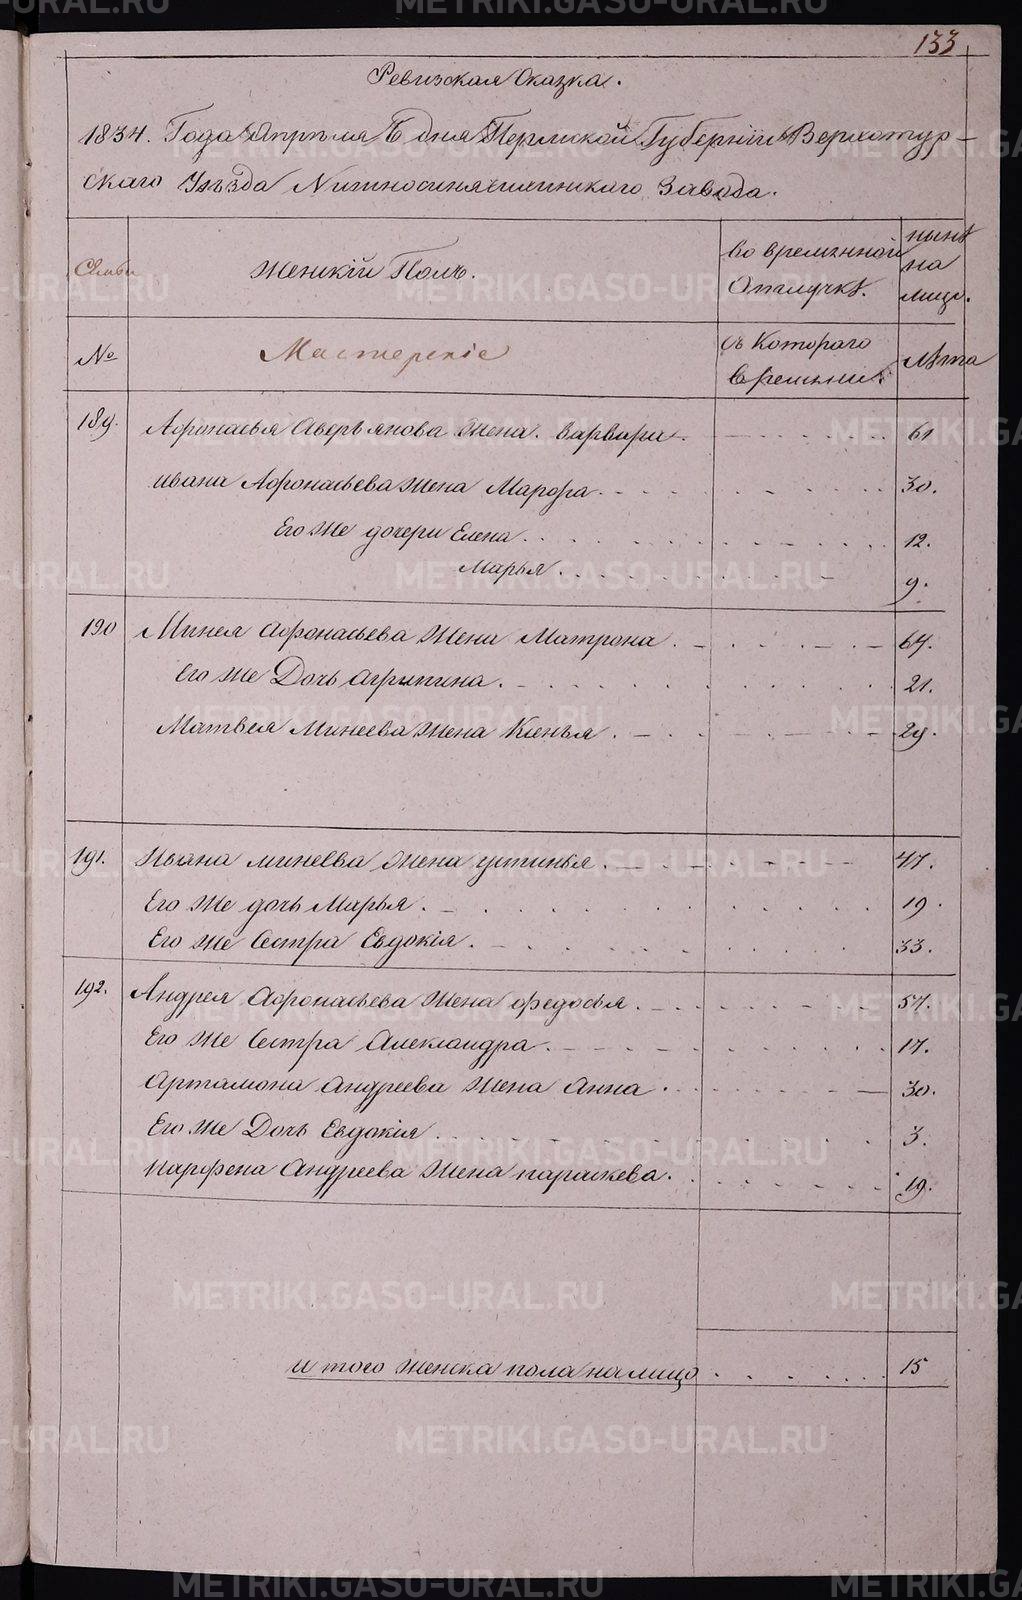 133
Ревизская Сказка.
1834. Года Апреля 6 дня Пермской Губернии Верхотур-
скаго Уѣзда Нижносинячихинскаго Завода.
Семьи
Женскій Полъ.
во временной
Отлучкѣ.
нынѣ
на
лицо.
№
Мастерскіе
съ Котораго
времени.
лѣта
189. Афонасья Аверьянова жена Варвара. 61
Ивана Афонасьева жена Марфа. 30.
Его же дочери Елена. 12.
Марья. 9.
190 Минея Афонасьева жена Матрона. 64.
Его же Дочь Агрипина. 21.
Матвея Минеева жена Ксенья. 29.
191. Ивана Минеева жена Устинья. 47.
Его же дочь Марья. 19.
Его же Сестра Евдокія. 33.
192. Андрея Афонасьева жена Федосья. 57.
Его же Сестра Александра. 17.
Артамона Андреева жена Анна. 30.
Его же Дочь Евдокія. 3.
Парфена Андреева жена Параскева. 19.
и того женска пола налицо 15
METRIKI.GASO-URAL.RU